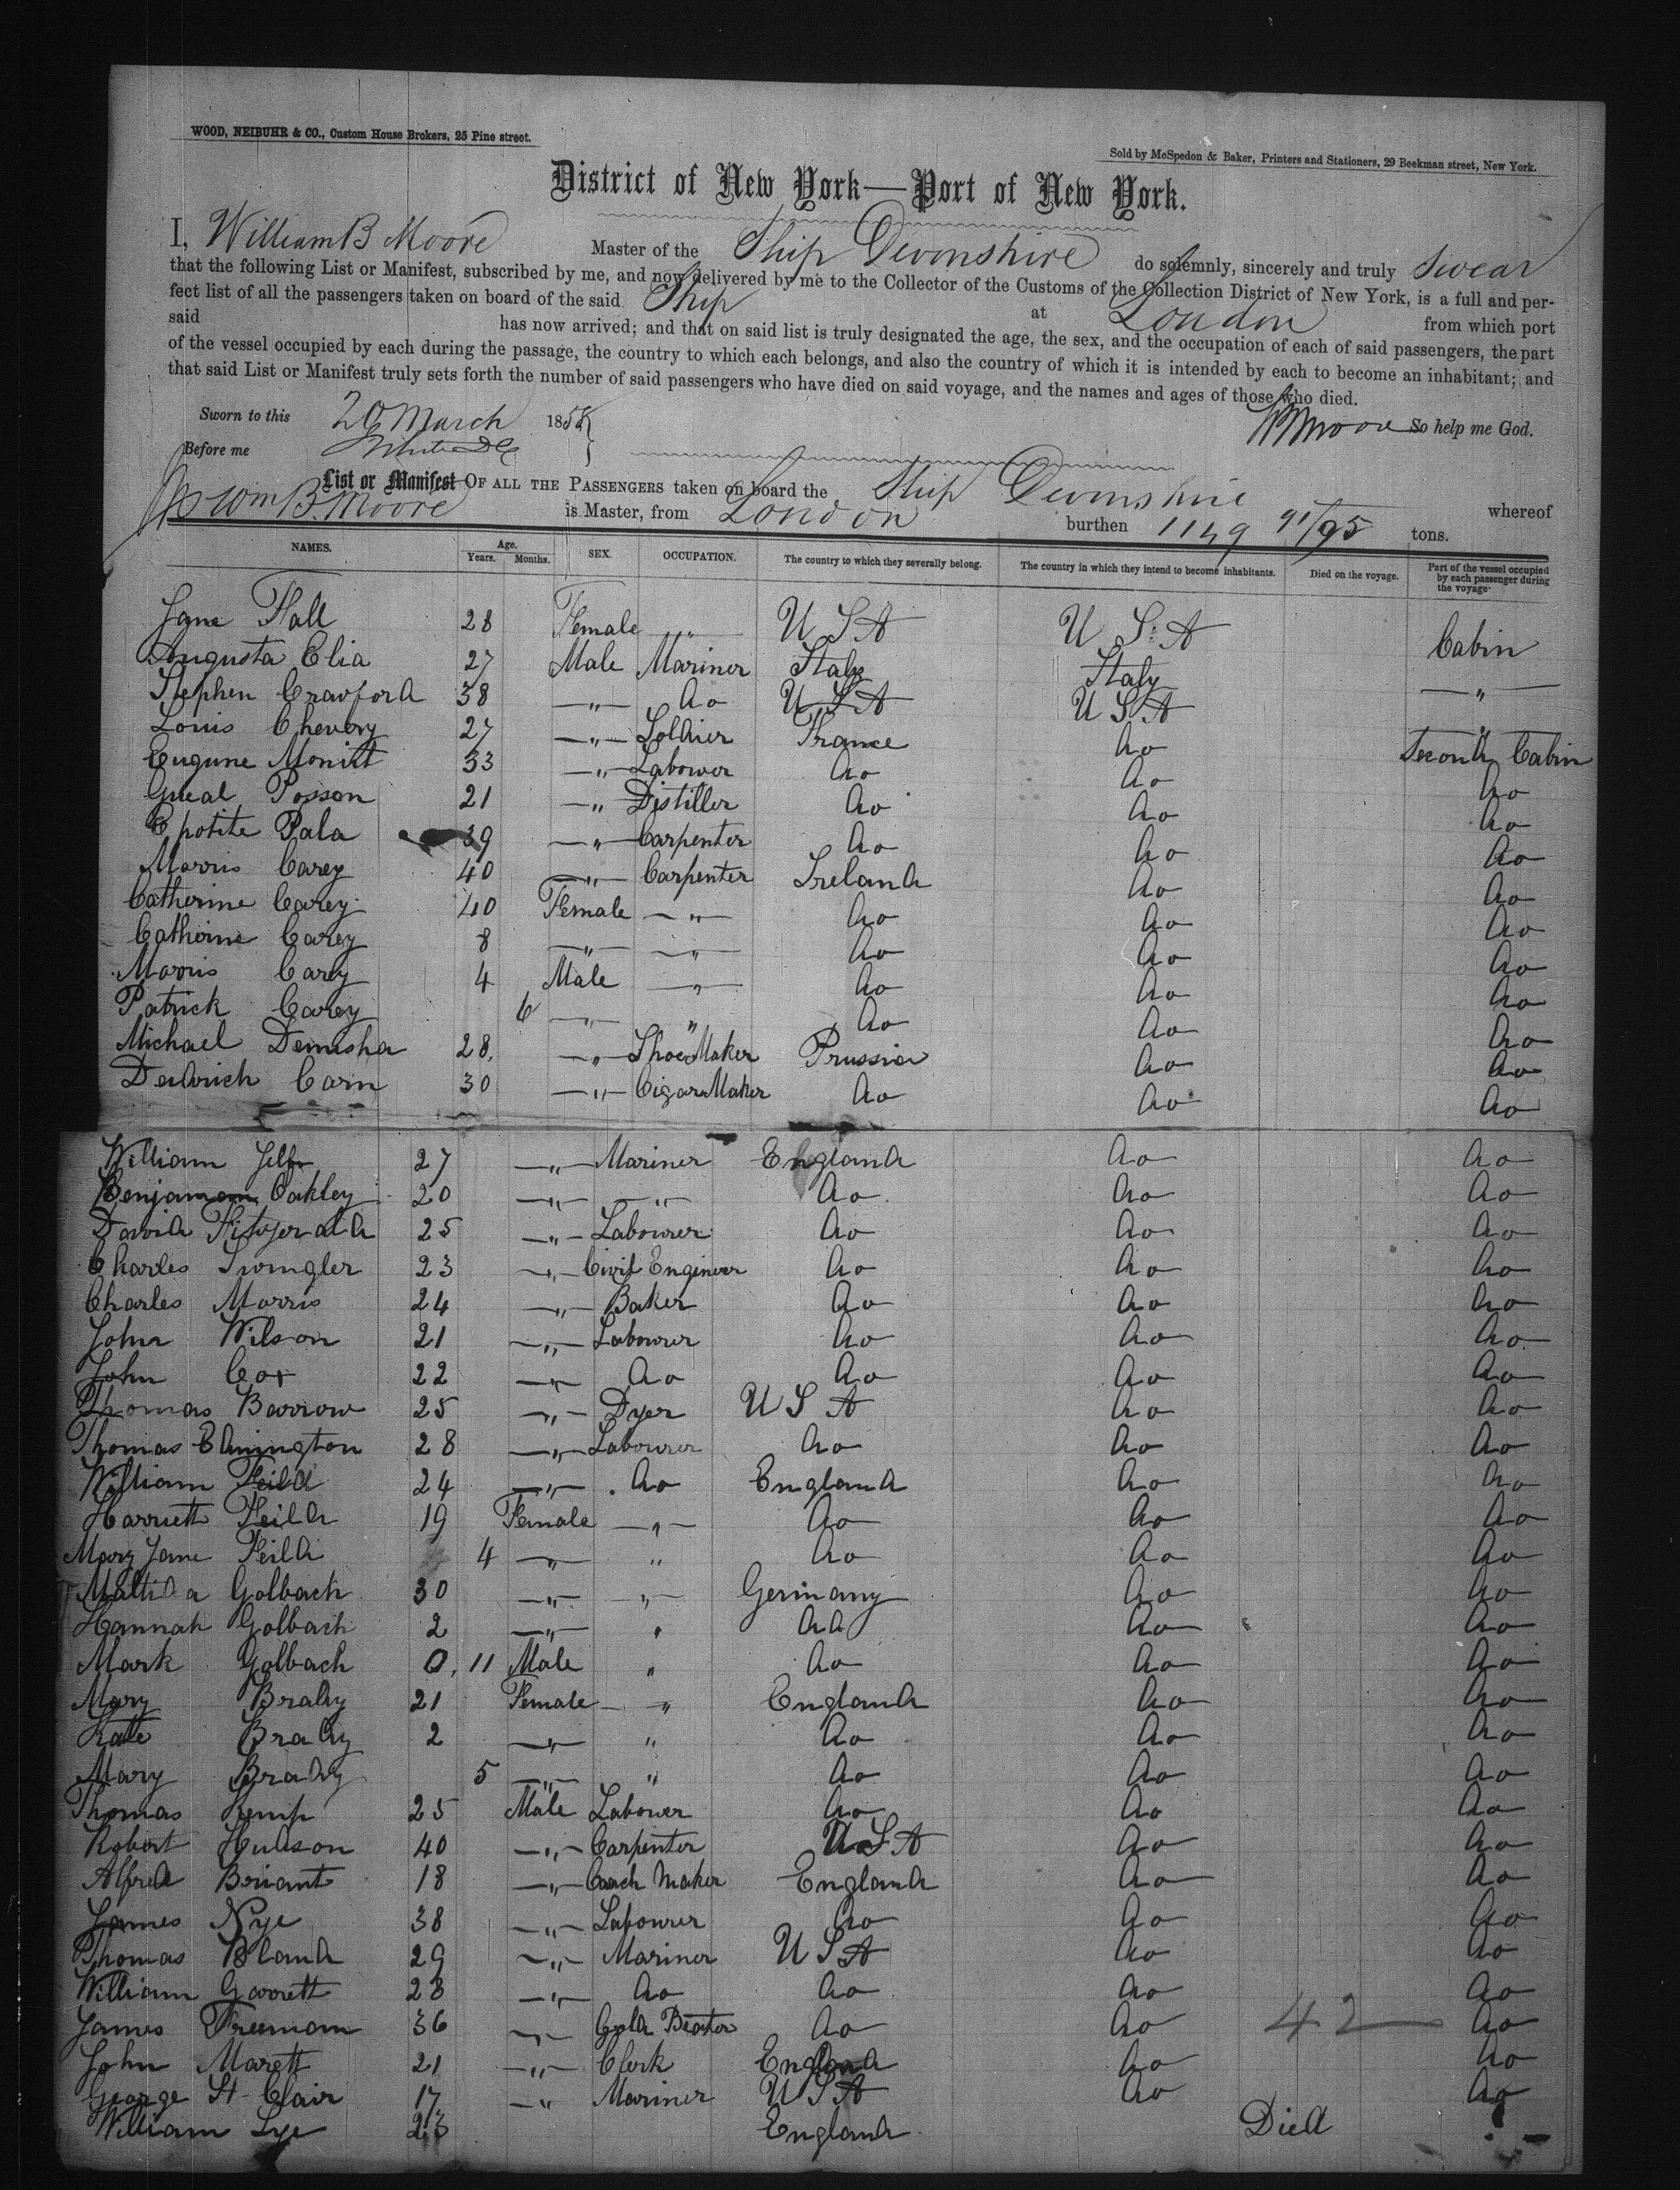 WOOD, NEIBUHR & CO., Custom House Brokers, 25 Pine street.
Sold by McSpedon & Baker, Printers and Stationers, 29 Beekman street, New York.
District of New York—Port of New York.
I, William B Moore Master of the Ship Devonshire do solemnly, sincerely and truly swear
that the following List or Manifest, subscribed by me, and now delivered by me to the Collector of the Customs of the Collection District of New York, is a full and per-
fect list of all the passengers taken on board of the said Ship at London from which port
said has now arrived; and that on said list is truly designated the age, the sex, and the occupation of each of said passengers, the part
of the vessel occupied by each during the passage, the country to which each belongs, and also the country of which it is intended by each to become an inhabitant; and
that said List or Manifest truly sets forth the number of said passengers who have died on said voyage, and the names and ages of those who died.
Sworn to this 20 March 185 WBMoore So help me God.
Before me
List or Manifest OF ALL THE PASSENGERS taken on board the Ship Devonshire whereof
Wm B. Moore is Master, from London burthen 1149 91/95 tons.
NAMES. Age. Years. Months. SEX. OCCUPATION. The country to which they severally belong. The country in which they intend to become inhabitants. Died on the voyage. Part of the vessel occupied by each passenger during the voyage
Jane Hall 28 Female " U S A U S A Cabin
Augusta Elia 27 Male Mariner Italy Italy "
Stephen Crawford 38 " do U S A U S A "
Louis Chevery 27 " Soldier France do Second Cabin
Eugune 33 " Labourer do do do
Posson 21 " Distiller do do do
Pala 39 " Carpenter do do do
Morris Carey 40 " Carpenter Ireland do do
Catherine Carey 40 Female " do do do
Catherine Carey 8 " " do do do
Morris Carey 4 Male " do do do
Patrick Carey 6 " " do do do
Michael Demisha 28 " Shoe Maker Prussia do do
Carn 30 " Cigar Maker do do do
William 27 " Mariner England do do
Benjamen Oakley 20 " " do do do
David Fitzgerald 25 " Labourer do do do
Charles Swingler 23 " Civil Engineer do do do
Charles Morris 24 " Baker do do do
John Wilson 21 " Labourer do do do
John Cox 22 " do do do do
Thomas Barrow 25 " Dyer U S A do do
Thomas Edmington 28 " Labourer do do do
William Feild 24 " do England do do
Harriett Feild 19 Female " do do do
Mary Jane Feild 4 " " do do do
Matilda Golbach 30 " " Germany do do
Hannah Golbach 2 " " do do do
Mark Golbach 0, 11 Male " do do do
Mary Brady 21 Female " England do do
Kate Brady 2 " " do do do
Mary Brady 5 " " do do do
Thomas Kemp 25 Male Labourer do do do
Robert Hudson 40 " Carpenter U S A do do
Alfred Briant 18 " Coach Maker England do do
James Nye 38 " Labourer do do do
Thomas Bland 29 " Mariner U S A do do
William Garrett 28 " do do do do
James Freeman 36 " Gold Beater do do 42 do
John Marett 21 " Clerk England do do
George St Clair 17 " Mariner U S A do do
William Lye 23 England Died